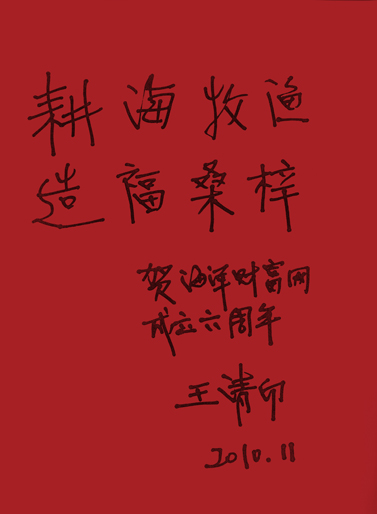 耕海牧渔
造福桑梓
贺海洋财富网
成立六周年
王清印
2010.11